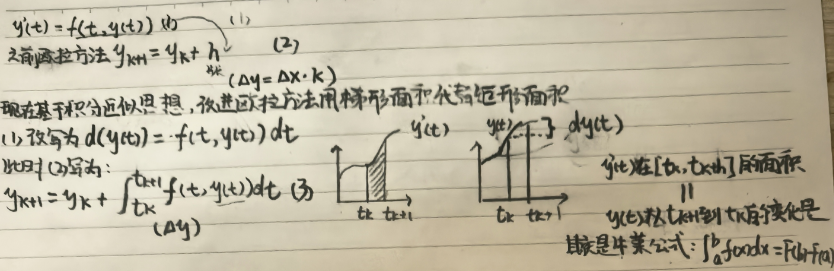 y'(t) = f(t, y(t)) (1)
之前欧拉方法 y_{k+1} = y_k + h (2)
(Δy = Δx·k)
现在基于积分近似思想，改进欧拉方法用梯形面积代替矩形面积
(1) 改写为 d(y(t)) = f(t, y(t)) dt
此时(2)写为：
y_{k+1} = y_k + ∫_{t_k}^{t_{k+1}} f(t, y(t)) dt (3)
(Δy)
y'(t)
t_k t_{k+1}
y(t) } dy(t)
t_k t_{k+1}
y'(t)在[t_k, t_{k+1}]的面积
=
y(t)从t_{k+1}到t_k的变化量
其实是牛莱公式：∫_a^b f(x)dx = F(b)-F(a)